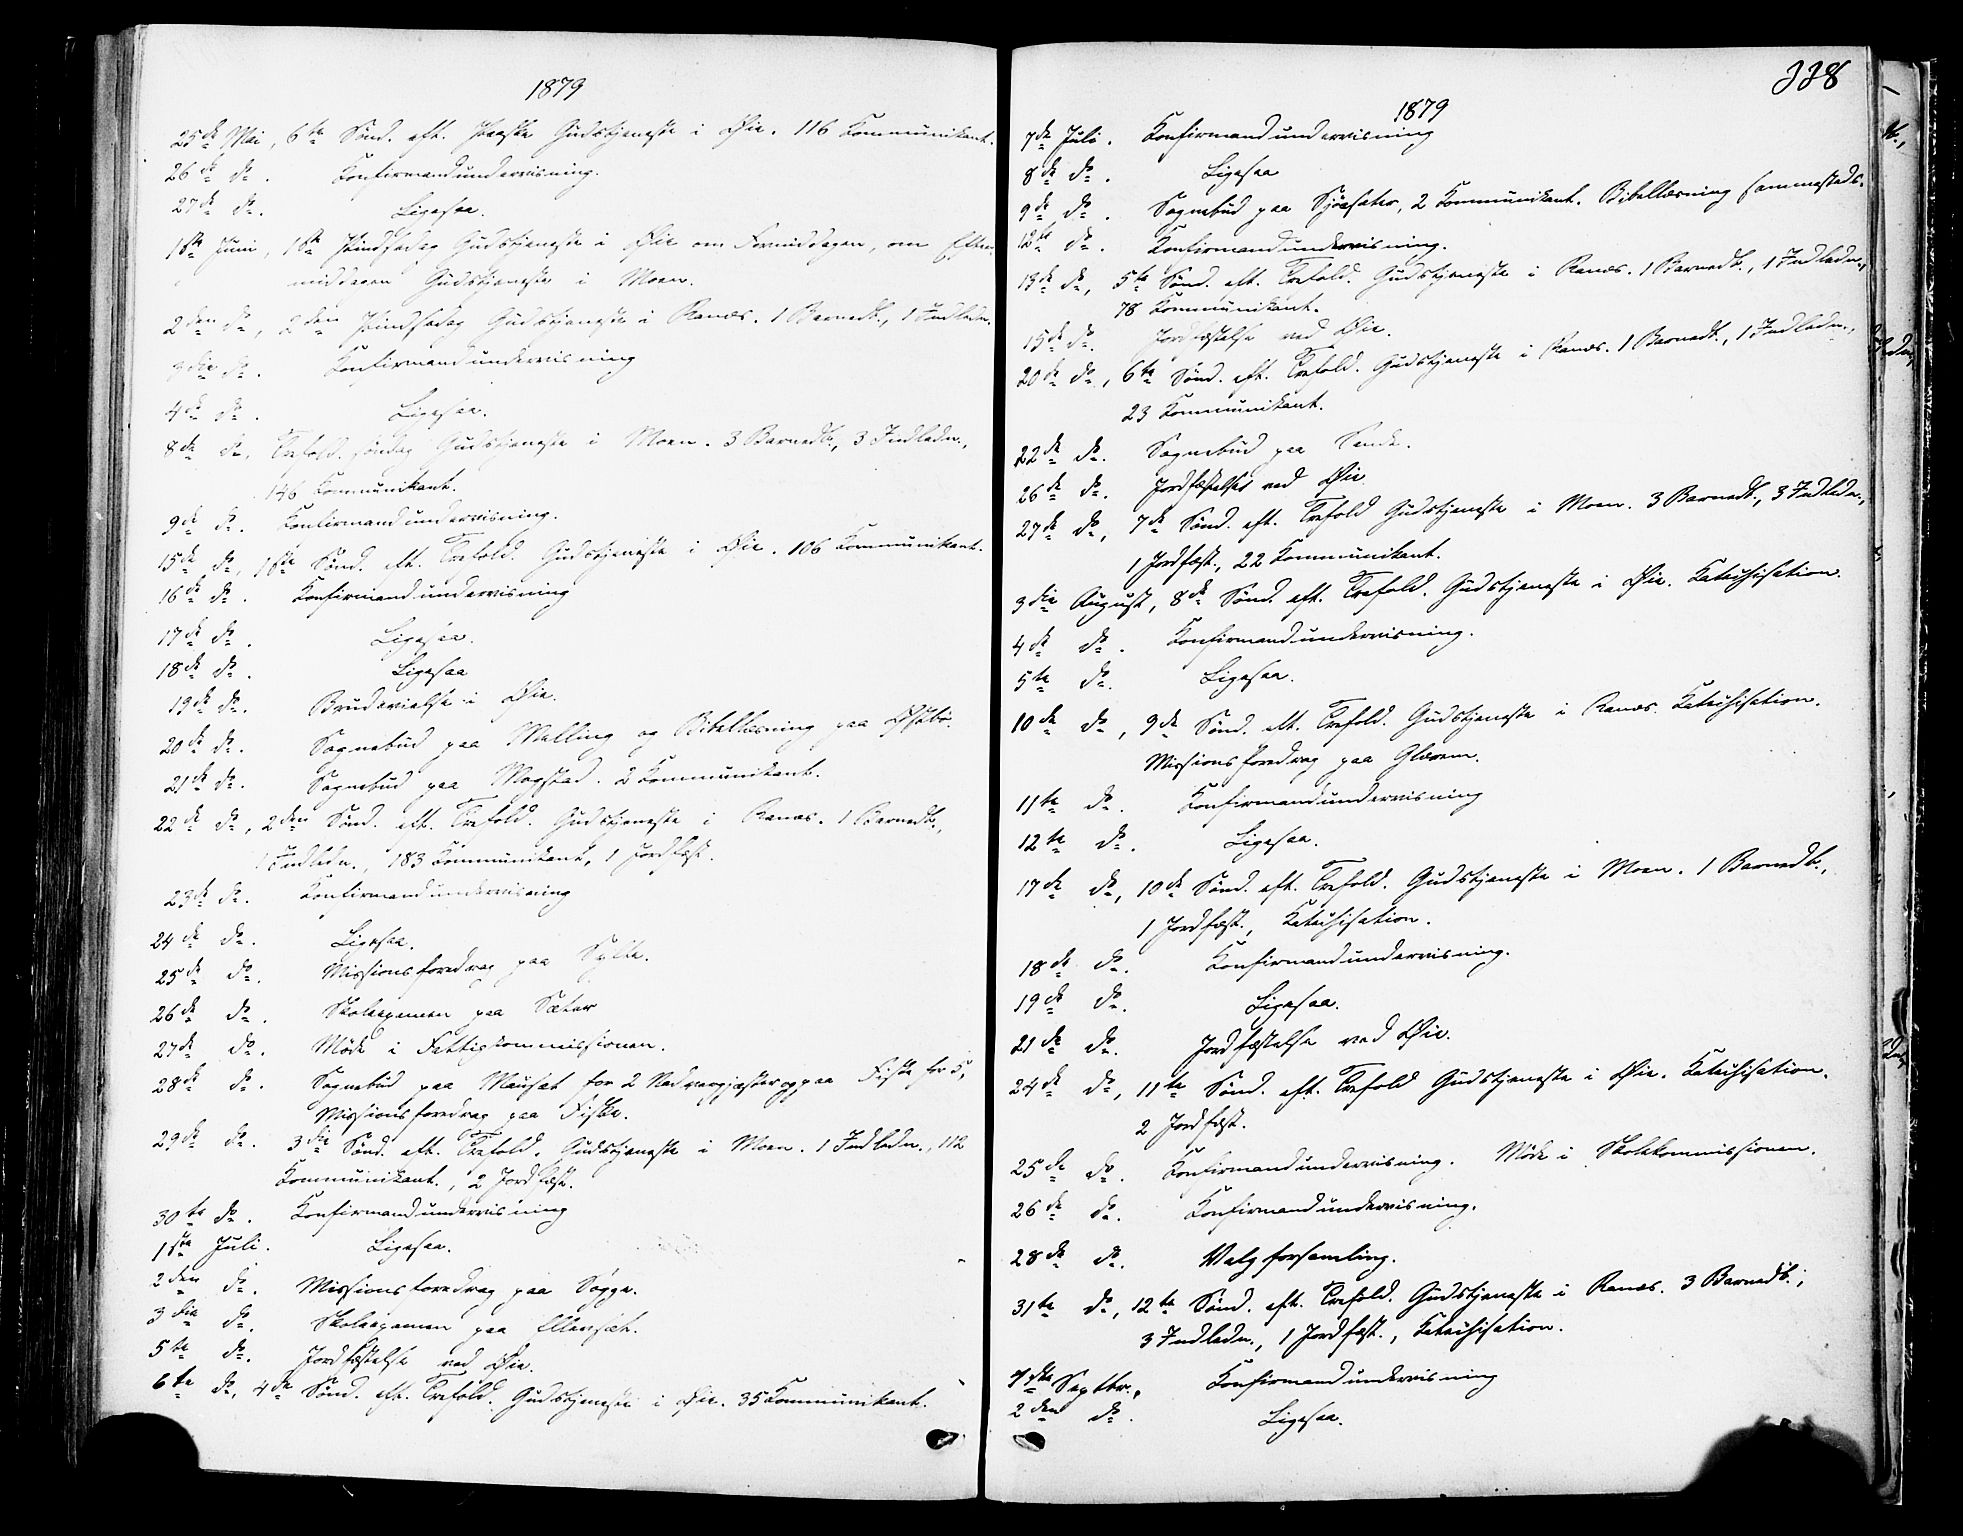 1879
25de Mai, 6te Sønd. eft. Paaske Gudstjeneste i Øie. 116 Kommunikant.
26de do. Konfirmandundervisning.
27de do. Ligesaa.
1ste Juni, 1ste Pindsedag Gudstjeneste i Øie om Formiddagen, om Efter-
middagen Gudstjeneste i Moen.
2den do, 2den Pindsedag Gudstjeneste i Ranæs. 1 Barnedb., 1 Indledn.
3die do. Konfirmandundervisning
4de do. Ligesaa.
8de do, Trefold. søndag Gudstjeneste i Moen. 3 Barnedb., 3 Indledn.,
146 Kommunikant.
9de do. Konfirmandundervisning.
15de do, 1ste Sønd. eft. Trefold. Gudstjeneste i Øie. 106 Kommunikant.
16de do. Konfirmandundervisning
17de do. Ligesaa.
18de do. Ligesaa
19de do. Brudevielse i Øie.
20de do. Sognebud paa Melling og Bibellæsning paa
21de do. Sognebud paa Mogstad. 2 Kommunikant.
22de do, 2den Sønd. eft. Trefold. Gudstjeneste i Ranæs. 1 Barnedb.,
1 Indledn., 183 Kommunikant, 1 Jordfæst.
23de do. Konfirmandundervisning
24de do. Ligesaa.
25de do. Missionsforedrag paa Sylte.
26de do. Skoleexamen paa Sæter
27de do. Møde i Fattigkommissionen.
28de do. Sognebud paa Mauset for 2 Nadvergjæster og paa Fiske for 5,
Missionsforedrag paa Fiske.
29de do. 3die Sønd. eft. Trefold. Gudstjeneste i Moen. 1 Indledn., 112
Kommunikant., 2 Jordfæst.
30te do. Konfirmandundervisning
1ste Juli. Ligesaa.
2den do. Missionsforedrag paa Søgge.
3die do. Skoleexamen paa Ellensæt.
5te do. Jordfæstelse ved Øie.
6te do, 4de Sønd. eft. Trefold. Gudstjeneste i Øie. 35 Kommunikant.
338
1879
7de Juli. Konfirmandundervisning
8de do. Ligesaa
9de do. Sognebud paa Sjøsæter, 2 Kommunikant. Bibellæsning sammesteds.
12te do. Konfirmandundervisning.
13de do, 5te Sønd. eft. Trefold. Gudstjeneste i Ranæs. 1 Barnedb., 1 Indledn.,
78 Kommunikant.
15de do. Jordfæstelse ved Øie.
20de do., 6te Sønd. eft. Trefold. Gudstjeneste i Ranæs. 1 Barnedb., 1 Indledn.,
23 Kommunikant.
22de do. Sognebud paa Sande.
26de do. Jordfæstelse ved Øie
27de do, 7de Sønd. eft. Trefold Gudstjeneste i Moen. 3 Barnedb., 3 Indledn.,
1 Jordfæst., 22 Kommunikant.
3die August, 8de Sønd. eft. Trefold. Gudstjeneste i Øie. Katechisation.
4de do. Konfirmandundervisning.
5te do. Ligesaa.
10de do, 9de Sønd. eft. Trefold. Gudstjeneste i Ranæs. Katechisation.
Missionsforedrag paa Glærem.
11te do. Konfirmandundervisning
12te do. Ligesaa.
17de do, 10de Sønd. eft. Trefold. Gudstjeneste i Moen. 1 Barnedb.,
1 Jordfæst., Katechisation.
18de do. Konfirmandundervisning.
19de do. Ligesaa.
21de do. Jordfæstelse ved Øie.
24de do, 11te Sønd. eft. Trefold Gudstjeneste i Øie. Katechisation.
2 Jordfæst.
25de do. Konfirmandundervisning. Møde i Skolekommissionen.
26de do. Konfirmandundervisning.
28de do. Valgforsamling.
31te do, 12te Sønd. eft. Trefold. Gudstjeneste i Ranæs. 3 Barnedb.,
3 Indledn., 1 Jordfæst., Katechisation.
1ste Septbr., Konfirmandundervisning
2den do. Ligesaa.